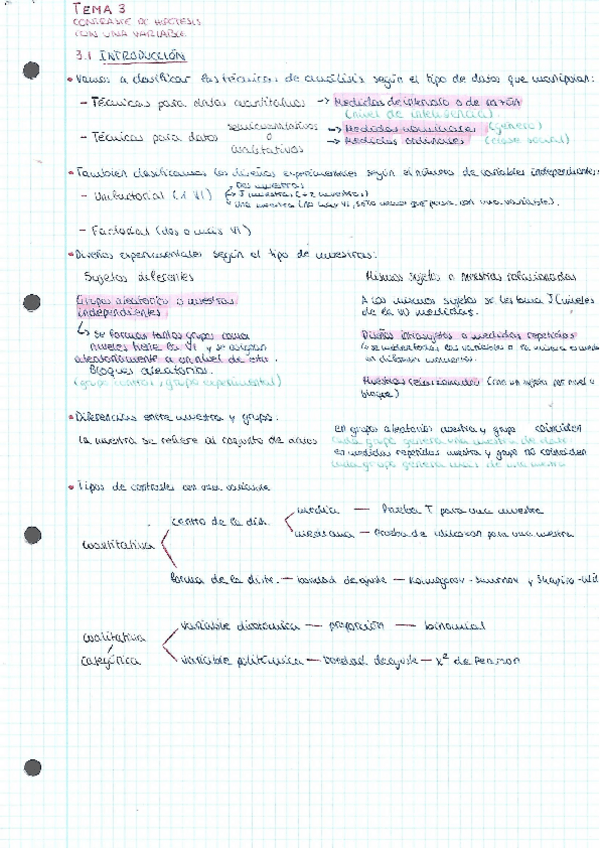 TEMA 3
CONTRASTE DE HIPÓTESIS
CON UNA VARIABLE
3.1 INTRODUCCIÓN
• Vamos a clasificar las técnicas de análisis según el tipo de datos que manipulan:
- Técnicas para datos cuantitativos → Medidas de intervalo o de razón
(nivel de inteligencia)
- Técnicas para datos semicuantitativos o cualitativos
→ Medidas nominales (género)
→ Medidas ordinales (clase social)
• También clasificamos los diseños experimentales según el número de variables independientes:
- Unifactorial (1 VI)
→ Dos muestras
→ J muestras (+2 muestras)
→ Una muestra (no hay VI, solo
- Factorial (dos o más VI)
• Diseños experimentales según el tipo de muestras:
Sujetos diferentes
Mismos sujetos o muestras relacionadas
Grupos aleatorios o muestras
independientes
↳ se forman tantos grupos como
niveles tiene la VI y se asignan
aleatoriamente a un nivel de esta.
Bloques aleatorios.
(grupo control, grupo experimental)
A los mismos sujetos se les toma J (niveles
de la VI) medidas.
Diseños intrasujetos o medidas repetidas
en diferentes momentos.
Muestras relacionadas (cada un sujeto por nivel y
bloque)
• Diferencias entre muestra y grupo.
la muestra se refiere al conjunto de datos
en grupos aleatorios muestra y grupo coinciden
cada grupo genera una muestra de datos.
en medidas repetidas muestra y grupo no coinciden
cada grupo genera más de una muestra
• Tipos de contrastes con una variable
cuantitativa
centro de la dist.
media — Prueba T para una muestra
mediana — Prueba de Wilcoxon para una muestra
forma de la distr. — bondad de ajuste — Kolmogorov-Smirnov y Shapiro-Wil
cualitativa
categórica
variable dicotómica — proporción — binomial
variable politómica — bondad de ajuste — X² de Pearson